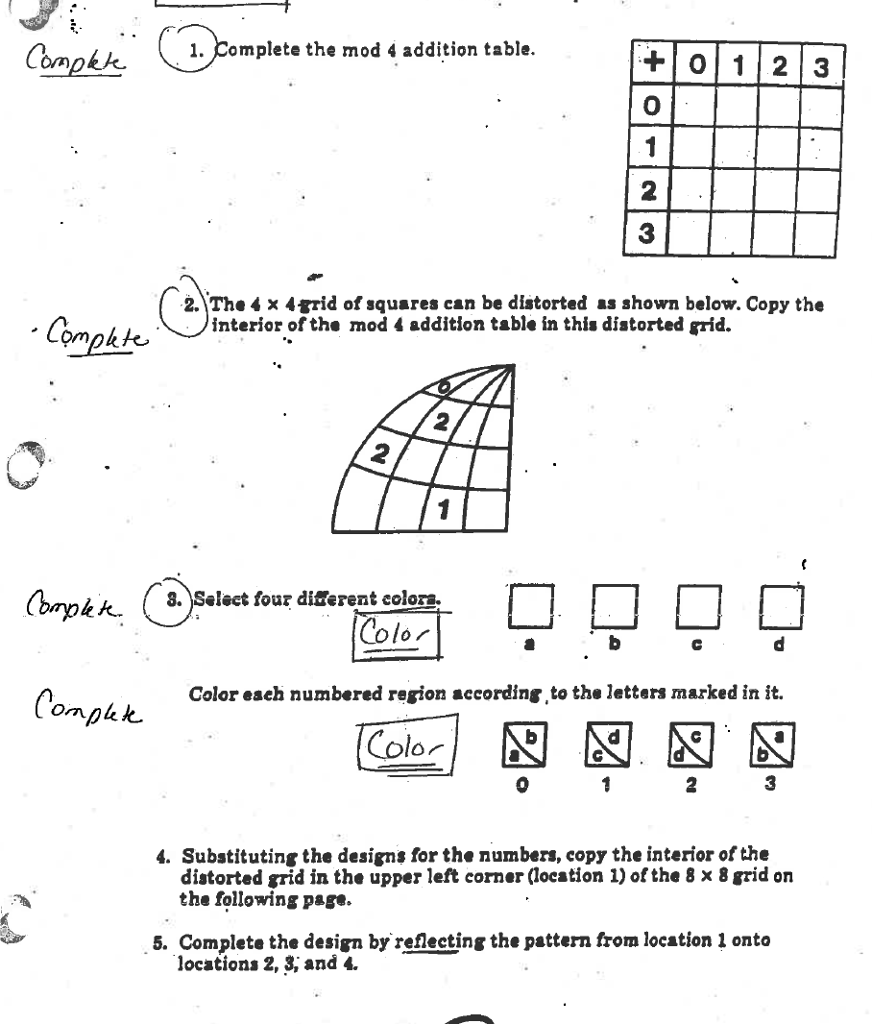 Complete
1. Complete the mod 4 addition table.
+ 0 1 2 3
0
1
2
3
Complete
2. The 4 × 4 grid of squares can be distorted as shown below. Copy the
interior of the mod 4 addition table in this distorted grid.
0
2
2
1
Complete
3. Select four different colors.
Color
a b c d
Complete
Color each numbered region according to the letters marked in it.
Color
b d c a
a c d b
0 1 2 3
4. Substituting the designs for the numbers, copy the interior of the
distorted grid in the upper left corner (location 1) of the 8 × 8 grid on
the following page.
5. Complete the design by reflecting the pattern from location 1 onto
locations 2, 3, and 4.